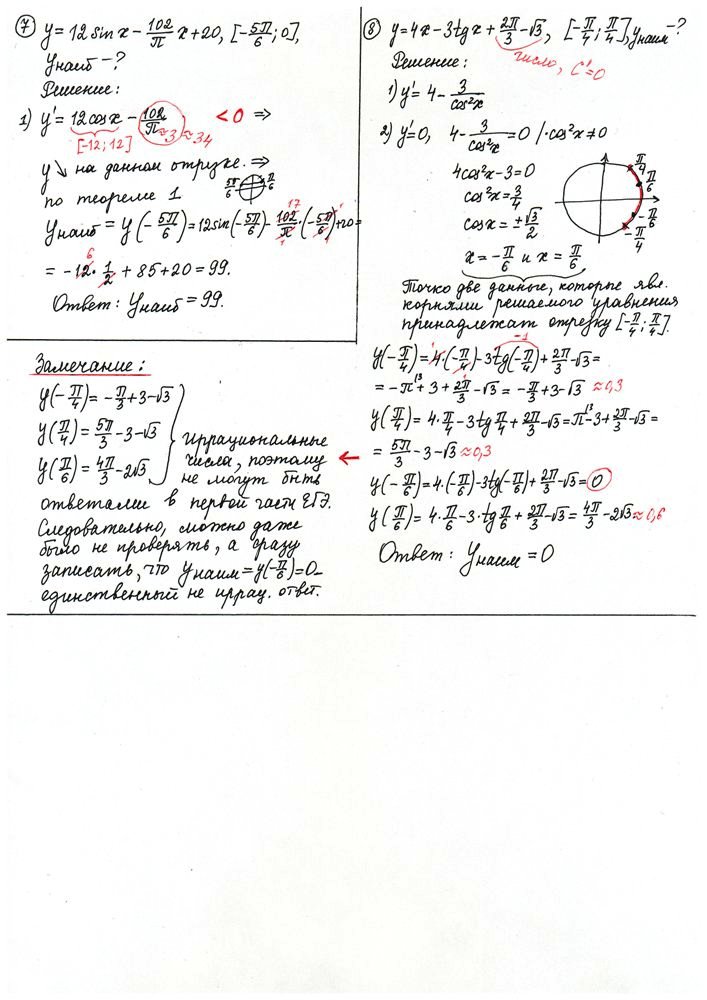 ⑦ y = 12 sin x − 102/π x + 20, [−5π/6; 0],
Yнаиб −?
Решение:
1) y' = 12cos x − 102/π < 0 ⇒
[-12; 12] ≈3 ≈ 34
y ↘ на данном отрузке. ⇒
по теореме 1 5π/6 π/6
Yнаиб = y(−5π/6) = 12sin(−5π/6) − 102/π · (−5π/6) + 20 =
17 1 1 1
6
= −12 · 1/2 + 85 + 20 = 99.
Ответ: Yнаиб = 99.
⑧ y = 4x − 3tg x + 2π/3 − √3, [−π/4; π/4], Yнаим −?
число, C'=0
Решение:
1) y' = 4 − 3/cos²x
2) y' = 0, 4 − 3/cos²x = 0 /·cos²x ≠ 0
4cos²x − 3 = 0
cos²x = 3/4
cos x = ±√3/2
x = −π/6 и x = π/6
π/4
π/6
−π/6
−π/4
Точко две данные, которые явл.
корнями решаемого уравнения
принадлежат отрезку [−π/4; π/4].
−1
y(−π/4) = 4·(−π/4) − 3tg(−π/4) + 2π/3 − √3 =
= −π + 3 + 2π/3 − √3 = −π/3 + 3 − √3 ≈ 0,3
y(π/4) = 4·π/4 − 3tg π/4 + 2π/3 − √3 = π − 3 + 2π/3 − √3 =
= 5π/3 − 3 − √3 ≈ 0,3
y(−π/6) = 4·(−π/6) − 3tg(−π/6) + 2π/3 − √3 = 0
y(π/6) = 4·π/6 − 3·tg π/6 + 2π/3 − √3 = 4π/3 − 2√3 ≈ 0,6
Ответ: Yнаим = 0
Замечание:
y(−π/4) = −π/3 + 3 − √3
y(π/4) = 5π/3 − 3 − √3
y(π/6) = 4π/3 − 2√3
иррациональные
числа, поэтому
не могут быть
ответами в первой части ЕГЭ.
Следовательно, можно даже
было не проверять, а сразу
записать, что Yнаим = y(−π/6) = 0 –
единственный не иррац. ответ.